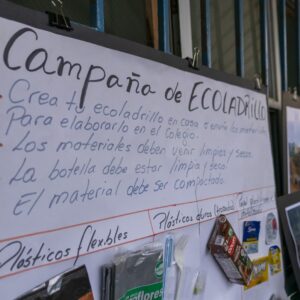 Campaña de ECOLADRILLO
Crea tu ecoladrillo en casa o envía los materiales
Para elaborarlo en el colegio.
Los materiales deben venir limpios y secos.
La botella debe estar limpia y seca.
El material debe ser compactado.
Plásticos flexibles
Plásticos duros
flores